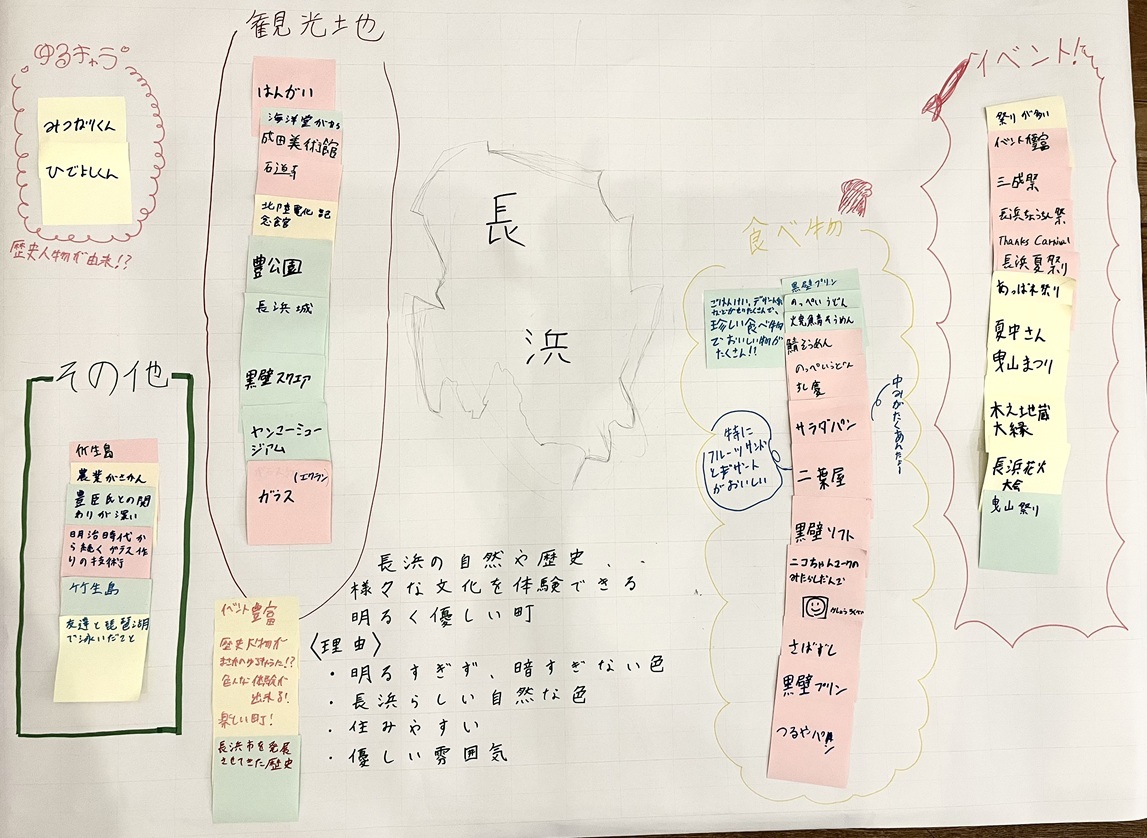 ゆるキャラ
みつなりくん
ひでよしくん
歴史人物が由来!?
観光地
はんがい
海洋堂
成田美術館
石道寺
北陸電化記
念館
豊公園
長浜城
黒壁スクエア
ヤンマーミュー
ジアム
ガラス
長
浜
イベント!
祭りが多い
イベント豊富
三成祭
長浜ちょうちん祭
Thanks Carnival
長浜夏祭り
あっぱれ祭り
夏中さん
曳山まつり
木之地蔵
大縁
長浜花火
大会
曳山祭り
食べ物
ごはんけい、デザート系
珍しい食べ物
でおいしい物が
たくさん!!
黒壁プリン
のっぺいうどん
焼鯖そうめん
鯖そうめん
のっぺいうどん
サラダパン
中みがたくあんだよー
特に
フルーツサンド
とギザント
がおいしい
二葉屋
黒壁ソフト
ニコちゃんマークの
みたらしだんご
さばずし
黒壁プリン
つるやパン
その他
竹生島
農業がさかん
豊臣氏との関
わりが深い
明治時代か
ら続くガラス作
りの技術
竹生島
友達と琵琶湖
で泳いだこと
イベント豊富
歴史人物が
色んな体験が
出来る!
楽しい町!
長浜市を発展
させてきた歴史
長浜の自然や歴史、、
様々な文化を体験できる
明るく優しい町
〈理由〉
・明るすぎず、暗すぎない色
・長浜らしい自然な色
・住みやすい
・優しい雰囲気